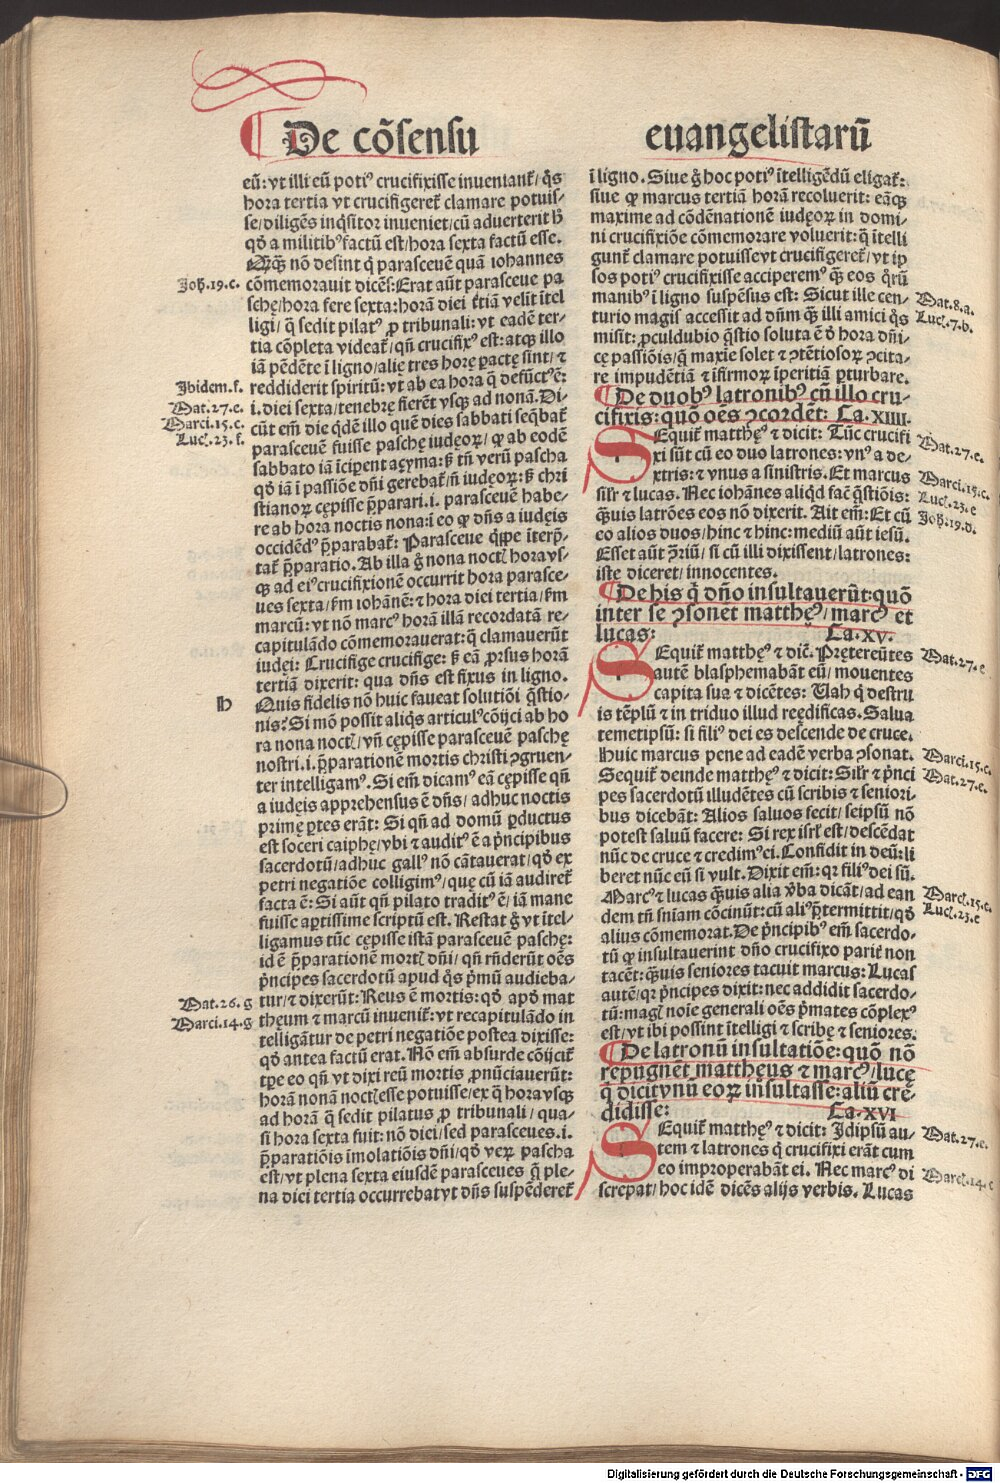 ¶ De cõsensu
euangelistarũ
eũ: vt illi eũ potiꝰ crucifixisse inueniant̃/ q̃s
hora tertia vt crucifigeret̃ clamare potuis-
se/ diligẽs inq̃sitor inueniet/ cũ aduerterit hꝰ
qđ a militibꝰ factũ est/ hora sexta factũ esse.
nõ desint q̃ parasceuẽ quã iohannes
Joh̃.19.c. cõmemorauit dicẽs: Erat aũt parasceue pa
schę/ hora fere sexta: horã diei t̃tiã velit ĩtel
ligi/ q̃ sedit pilatꝰ ꝓ tribunali: vt eadẽ ter-
tia cõpleta videat̃/ qñ crucifixꝰ est: atqꝫ illo
iã pẽdẽte ĩ ligno/ alię tres horę ꝑactę sint/ ⁊
Ibidem.f. reddiderit spiritũ: vt ab ea hora q̃ defũctꝰ ẽ:
Mat.27.e. i. diei sexta/ tenebrę fierẽt vsqꝫ ad nonã. Di
Marci.15.c. cũt em̃ die q̃dẽ illo quẽ dies sabbati seq̃bat̃
Luc.23.f. parasceuẽ fuisse paschę iudęoꝝ/ ꝙ ab eodẽ
sabbato iã ĩcipent aȥyma: sȝ tñ verũ pascha
qđ iã ĩ passiõe dñi gerebat̃/ ñ iudęoꝝ: sȝ chri
stianoꝝ cępisse p̃parari .i. parasceuẽ habe-
re ab hora noctis nona: ĩ eo ꝙ dñs a iudęis
occidẽdꝰ p̃parabat̃: Parasceue q̃ppe iterp̃-
tat̃ p̃paratio. Ab illa ḡ nona noctꝭ hora vs-
qꝫ ad eiꝰ crucifixionẽ occurrit hora parasce-
ues sexta/ ẜm iohãnẽ: ⁊ hora diei tertia/ ẜm
marcũ: vt nõ marcꝰ horã illã recordatã re-
capitulãdo cõmemorauerat: q̃ clamauerũt
iudęi: Crucifige crucifige: sȝ eã ꝓrsus horã
tertiã dixerit: qua dñs est fixus in ligno.
h Quis fidelis nõ huic faueat solutiõi q̃stio-
nis? Si mõ possit aliq̃s articulꝰ cõijci ab ho
ra nona noctꝭ/ vñ cępisse parasceuẽ paschę
nostri .i. p̃parationẽ mortis christi ꝯgruen-
ter intelligamꝰ. Si em̃ dicamꝰ eã cępisse qñ
a iudęis apprehensus ẽ dñs/ adhuc noctis
primę ꝑtes erãt: Si qñ ad domũ ꝑductus
est soceri caiphę/ vbi ⁊ auditꝰ ẽ a p̃ncipibus
sacerdotũ/ adhuc gallꝰ nõ cãtauerat/ qđ ex
petri negatiõe colligimꝰ/ quę cũ iã audiret̃
facta ẽ: Si aũt qñ pilato traditꝰ ẽ/ iã mane
fuisse aꝑtissime scriptũ est. Restat ḡ vt ĩtel-
ligamus tũc cępisse istã parasceuẽ paschę:
id ẽ p̃parationẽ mortꝭ dñi/ qñ rñderũt oẽs
p̃ncipes sacerdotũ apud q̃s p̃mũ audieba-
Mat.26.g tur/ ⁊ dixerũt: Reus ẽ mortis: qđ apđ mat
Marci.14.g thęum ⁊ marcũ inuenit̃: vt recapitulãdo in
telligãtur de petri negatiõe postea dixisse:
qđ antea factũ erat. Nõ em̃ absurde cõijcit̃
tꝑe eo qñ vt dixi reũ mortis ꝓnũciauerũt:
horã nonã noctꝭ esse potuisse/ ex q̃ hora vsqꝫ
ad horã q̃ sedit pilatus ꝓ tribunali/ qua-
si hora sexta fuit: nõ diei/ sed parasceues .i.
p̃paratiõis ĩmolatiõis dñi/ qđ veꝝ pascha
est/ vt plena sexta eiusdẽ parasceues q̃ ple-
na diei tertia occurrebat vt dñs suspẽderet̃
ĩ ligno. Siue ḡ hoc potiꝰ ĩtelligẽdũ eligat̃:
siue ꝙ marcus tertiã horã recoluerit: eãqꝫ
maxime ad cõdẽnationẽ iudęoꝝ in domi-
ni crucifixiõe cõmemorare voluerit: q̃ ĩtelli
gunt̃ clamare potuisse vt crucifigeret̃/ vt ip
sos potiꝰ crucifixisse acciperemꝰ q̃ꝫ eos q̃rũ
manibꝰ ĩ ligno suspẽsus est: Sicut ille cen- Mat.8.a.
turio magis accessit ad dñm q̃ꝫ illi amici q̃s Luc.7.b.
misit: ꝓculdubio q̃stio soluta ẽ đ hora dñi-
cę passiõis/ q̃ maxĩe solet ⁊ ꝯtẽtiosoꝝ ꝯcita-
re impudẽtiã ⁊ ĩfirmoꝝ ĩperitiã ꝑturbare.
¶ De duobꝰ latronibꝰ cũ illo cru-
cifixis: quõ oẽs ꝯcordẽt: Ca.XIIII.
SEquit̃ matthęꝰ ⁊ dicit: Tũc crucifi Mat.27.e.
xi sũt cũ eo duo latrones: vnꝰ a de-
xtris: ⁊ vnus a sinistris. Et marcus Marci.15.c.
sil̃r ⁊ lucas. Nec iohãnes aliq̃d fac̃ q̃stiõis: Luc.23.e
q̃ꝫuis latrões eos nõ dixerit. Ait em̃: Et cũ Joh̃.19.d.
eo alios duos/ hinc ⁊ hinc: mediũ aut iesũ.
Esset aũt ꝯ̃riũ/ si cũ illi dixissent/ latrones:
iste diceret/ innocentes.
¶ De his q̃ dño insultauerũt: quõ
inter se ꝯsonẽt matthęꝰ/ marcꝰ et
lucas: Ca.XV.
SEquit̃ matthęꝰ ⁊ dic̃. Prętereũtes Mat.27.e
autẽ blasphemabãt eũ/ mouentes
capita sua ⁊ dicẽtes: Uah q̃ destru
is tẽplũ ⁊ in triduo illud reędificas. Salua
temetipsũ: si filiꝰ dei es descende de cruce.
Huic marcus pene ad eadẽ verba ꝯsonat. Marci.15.c.
Sequit̃ deinde matthęꝰ ⁊ dicit: Sil̃r ⁊ p̃nci Mat.27.e.
pes sacerdotũ illudẽtes cũ scribis ⁊ seniori-
bus dicebãt: Alios saluos fecit/ seipsũ nõ
potest saluũ facere: Si rex isrl̃ est/ descẽdat
nũc de cruce ⁊ credimꝰ ei. Confidit in deũ: li
beret nũc eũ si vult. Dixit em̃: qꝛ filiꝰ dei sũ.
Marcꝰ ⁊ lucas q̃ꝫuis alia v̓ba dicãt/ ad ean Marci.15.c.
dem tñ sniam cõcinũt: cũ aliꝰ p̃termittit/ qđ Luc.23.e
alius cõmemorat. De p̃ncipibꝰ em̃ sacerdo-
tũ ꝙ insultauerint dño crucifixo parit̃ non
tacẽt: q̃ꝫuis seniores tacuit marcus: Lucas
autẽ/ qꝛ p̃ncipes dixit: nec addidit sacerdo-
tũ: magꝭ noĩe generali oẽs p̃mates cõplexꝰ
est/ vt ibi possint ĩtelligi ⁊ scribę ⁊ seniores.
¶ De latronũ insultatiõe: quõ nõ
repugnẽt matthęus ⁊ marcꝰ/ lucę
q̃ dicit vnũ eoꝝ insultasse: aliũ cre-
didisse: Ca.XVI
SEquit̃ matthęꝰ ⁊ dicit: Idipsũ au- Mat.27.e.
tem ⁊ latrones q̃ crucifixi erãt cum
eo improperabãt ei. Nec marcꝰ di Marci.14.c
screpat/ hoc idẽ dicẽs alijs verbis. Lucas
Digitalisierung gefördert durch die Deutsche Forschungsgemeinschaft - DFG